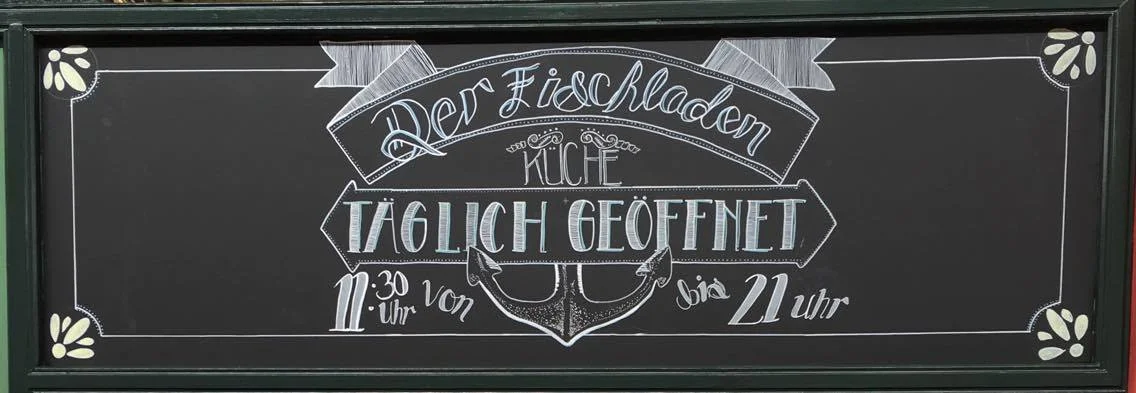 Der Fischladen
KÜCHE
TÄGLICH GEÖFFNET
11:30 Uhr von bis 21 uhr